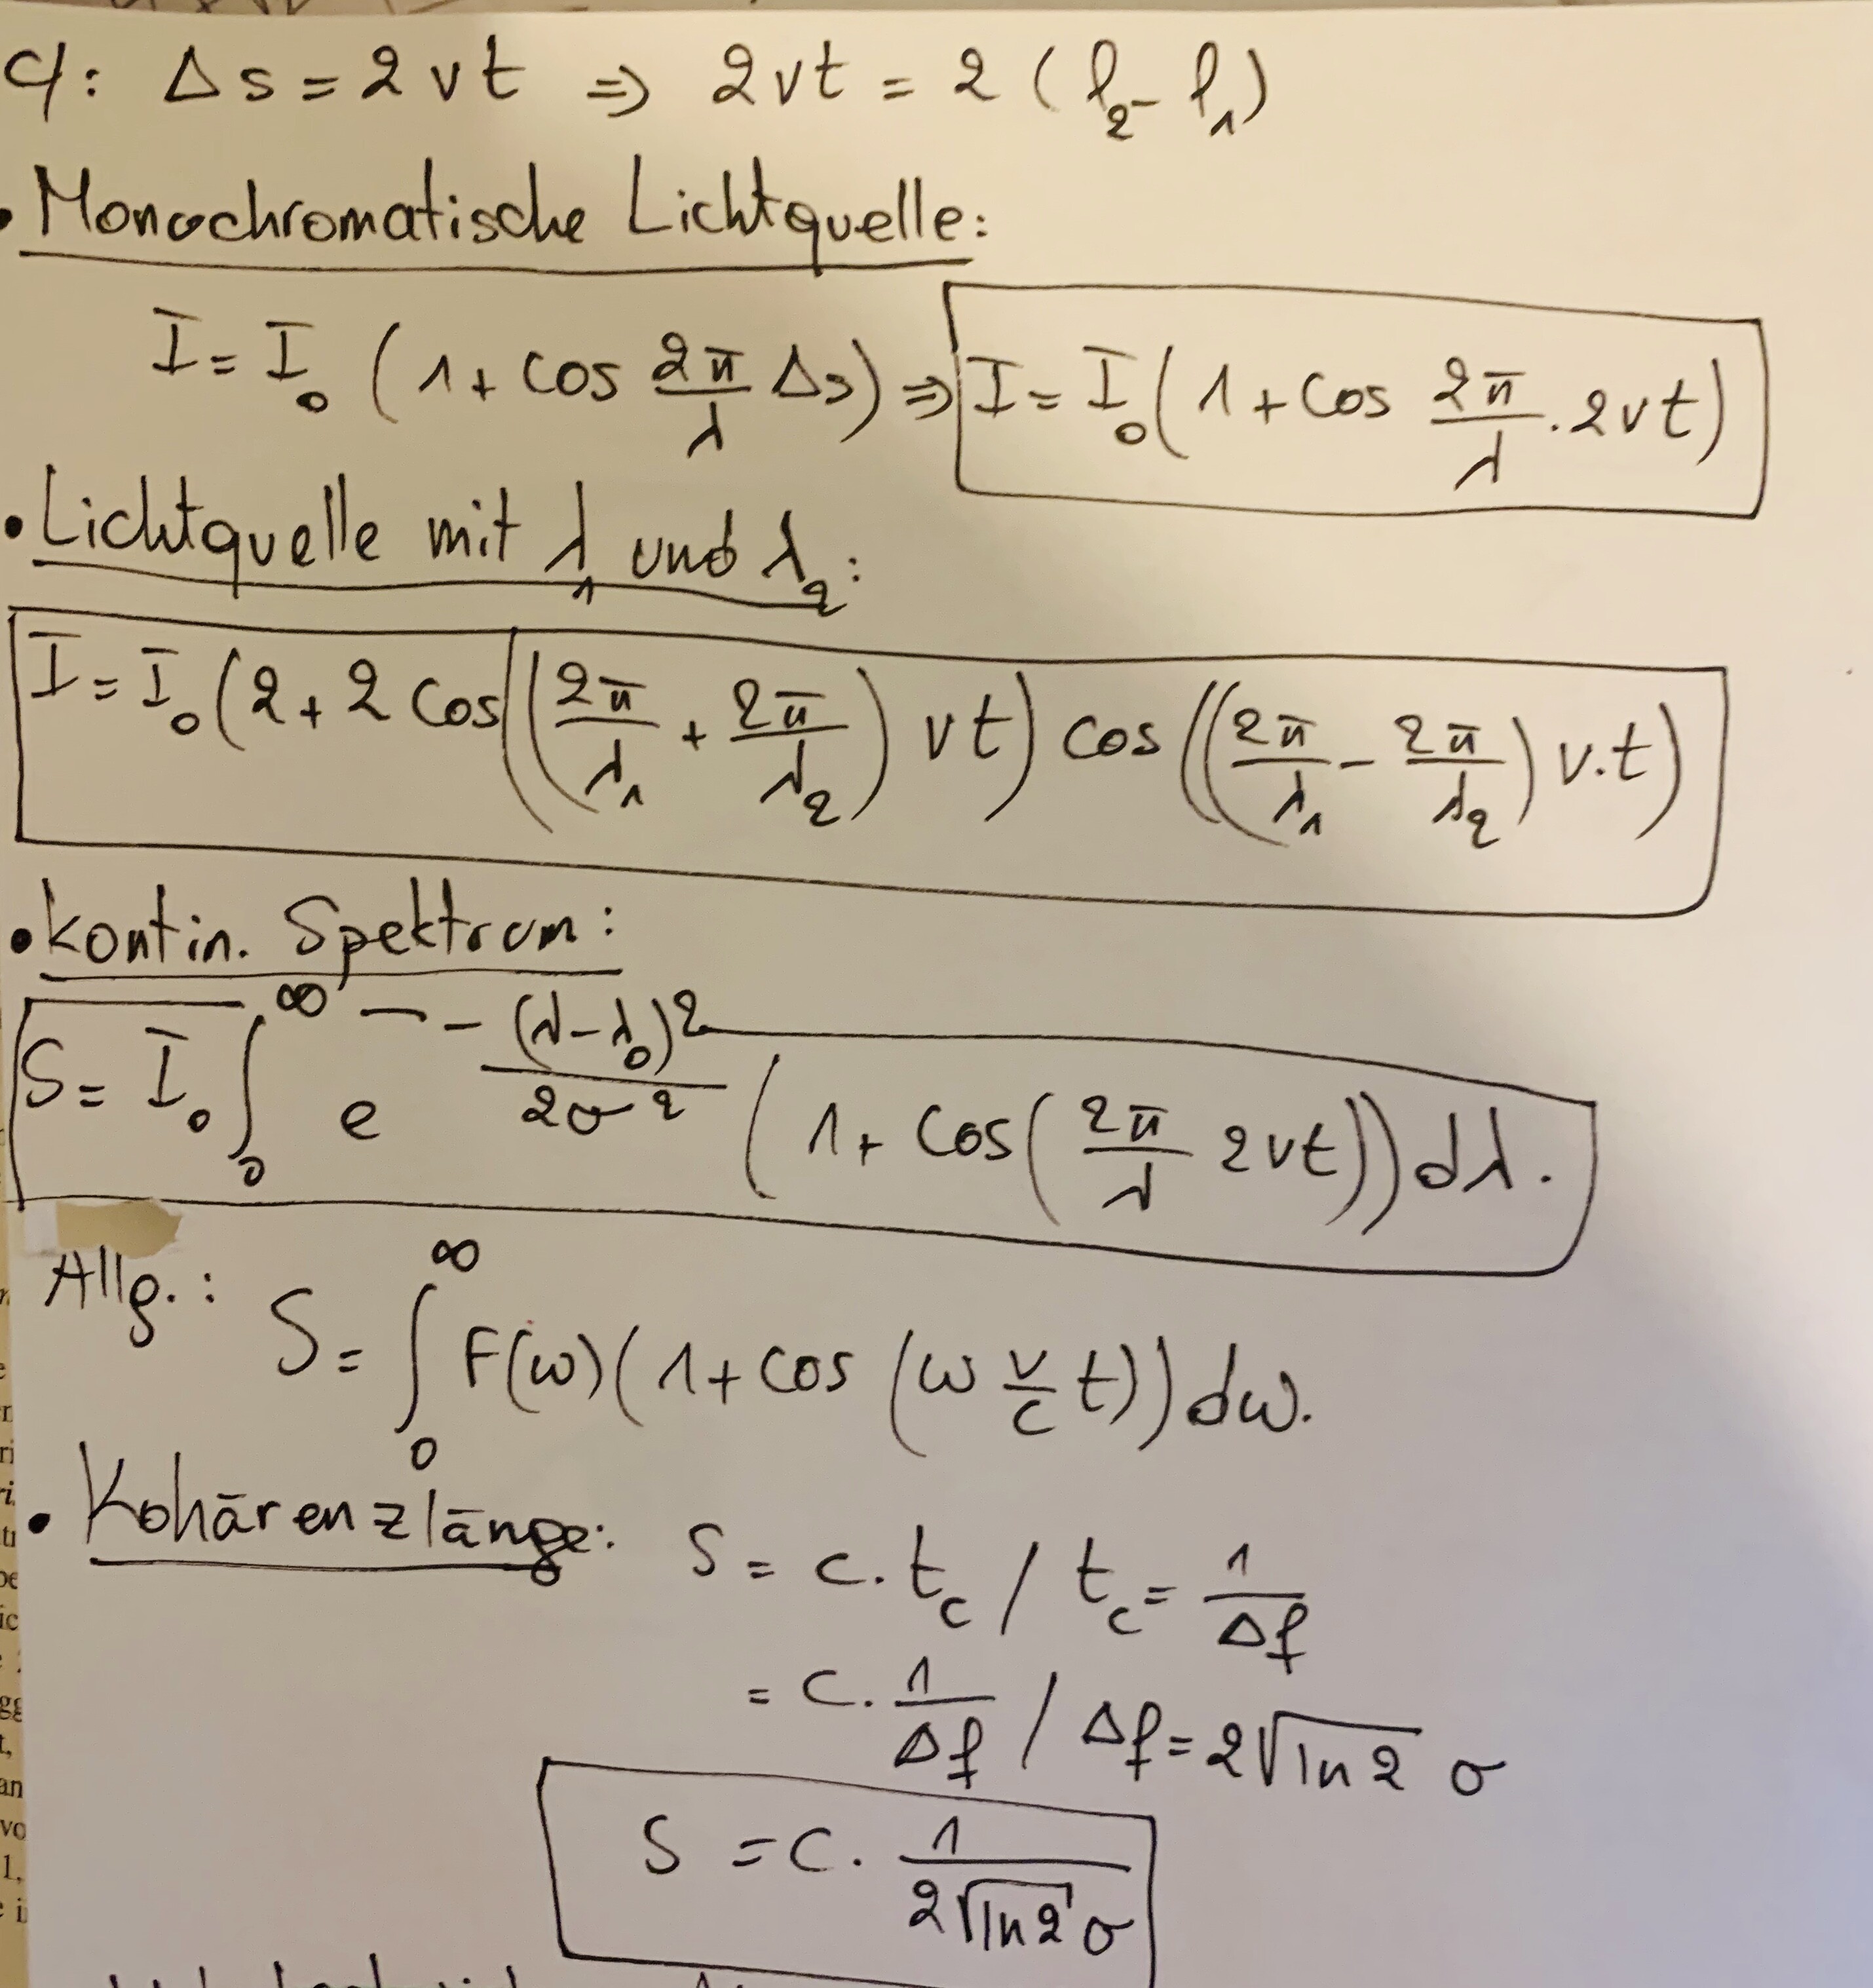 c/: Δs = 2vt ⇒ 2vt = 2(l₂ - l₁)
• Monochromatische Lichtquelle:
I = I₀ (1 + cos 2π/λ Δs) ⇒ I = I₀ (1 + cos 2π/λ . 2vt)
• Lichtquelle mit λ₁ und λ₂:
I = I₀ (2 + 2 cos((2π/λ₁ + 2π/λ₂) vt) cos((2π/λ₁ - 2π/λ₂) v.t)
• Kontin. Spektrum:
S = I₀ ∫₀^∞ e^(-(λ-λ₀)²/2σ²) (1 + cos(2π/λ 2vt)) dλ.
Allg.: S = ∫₀^∞ F(ω)(1 + cos(ω v/c t)) dω.
• Kohärenzlänge: S = c. t_c / t_c = 1/Δf
= c. 1/Δf / Δf = 2√ln2 σ
S = c. 1/(2√ln2 σ)